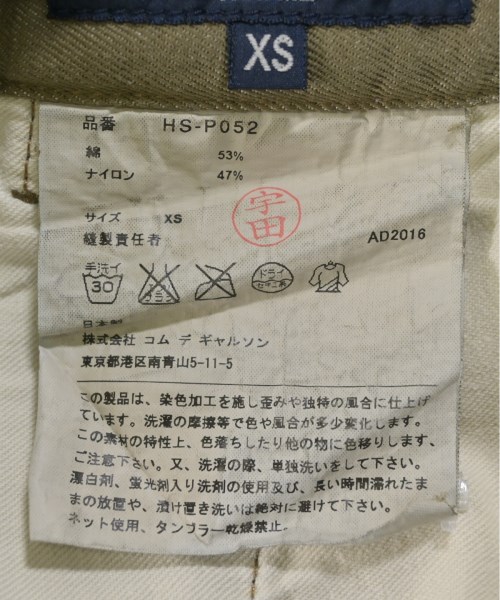 XS
品番 HS-P052
綿 53%
ナイロン 47%
サイズ XS
縫製責任者 宇田 AD2016
手洗イ 30 ドライ セキユ系
日本製
株式会社 コム デ ギャルソン
東京都港区南青山5-11-5
この製品は、染色加工を施し歪みや独特の風合に仕上げ
ています。洗濯の摩擦等で色や風合が多少変化します。
この素材の特性上、色落ちしたり他の物に色移りします、
ご注意下さい。又、洗濯の際、単独洗いをして下さい。
漂白剤、蛍光剤入り洗剤の使用及び、長い時間濡れたま
まの放置や、漬け置き洗いは絶対に避けて下さい。
ネット使用、タンブラー乾燥禁止。